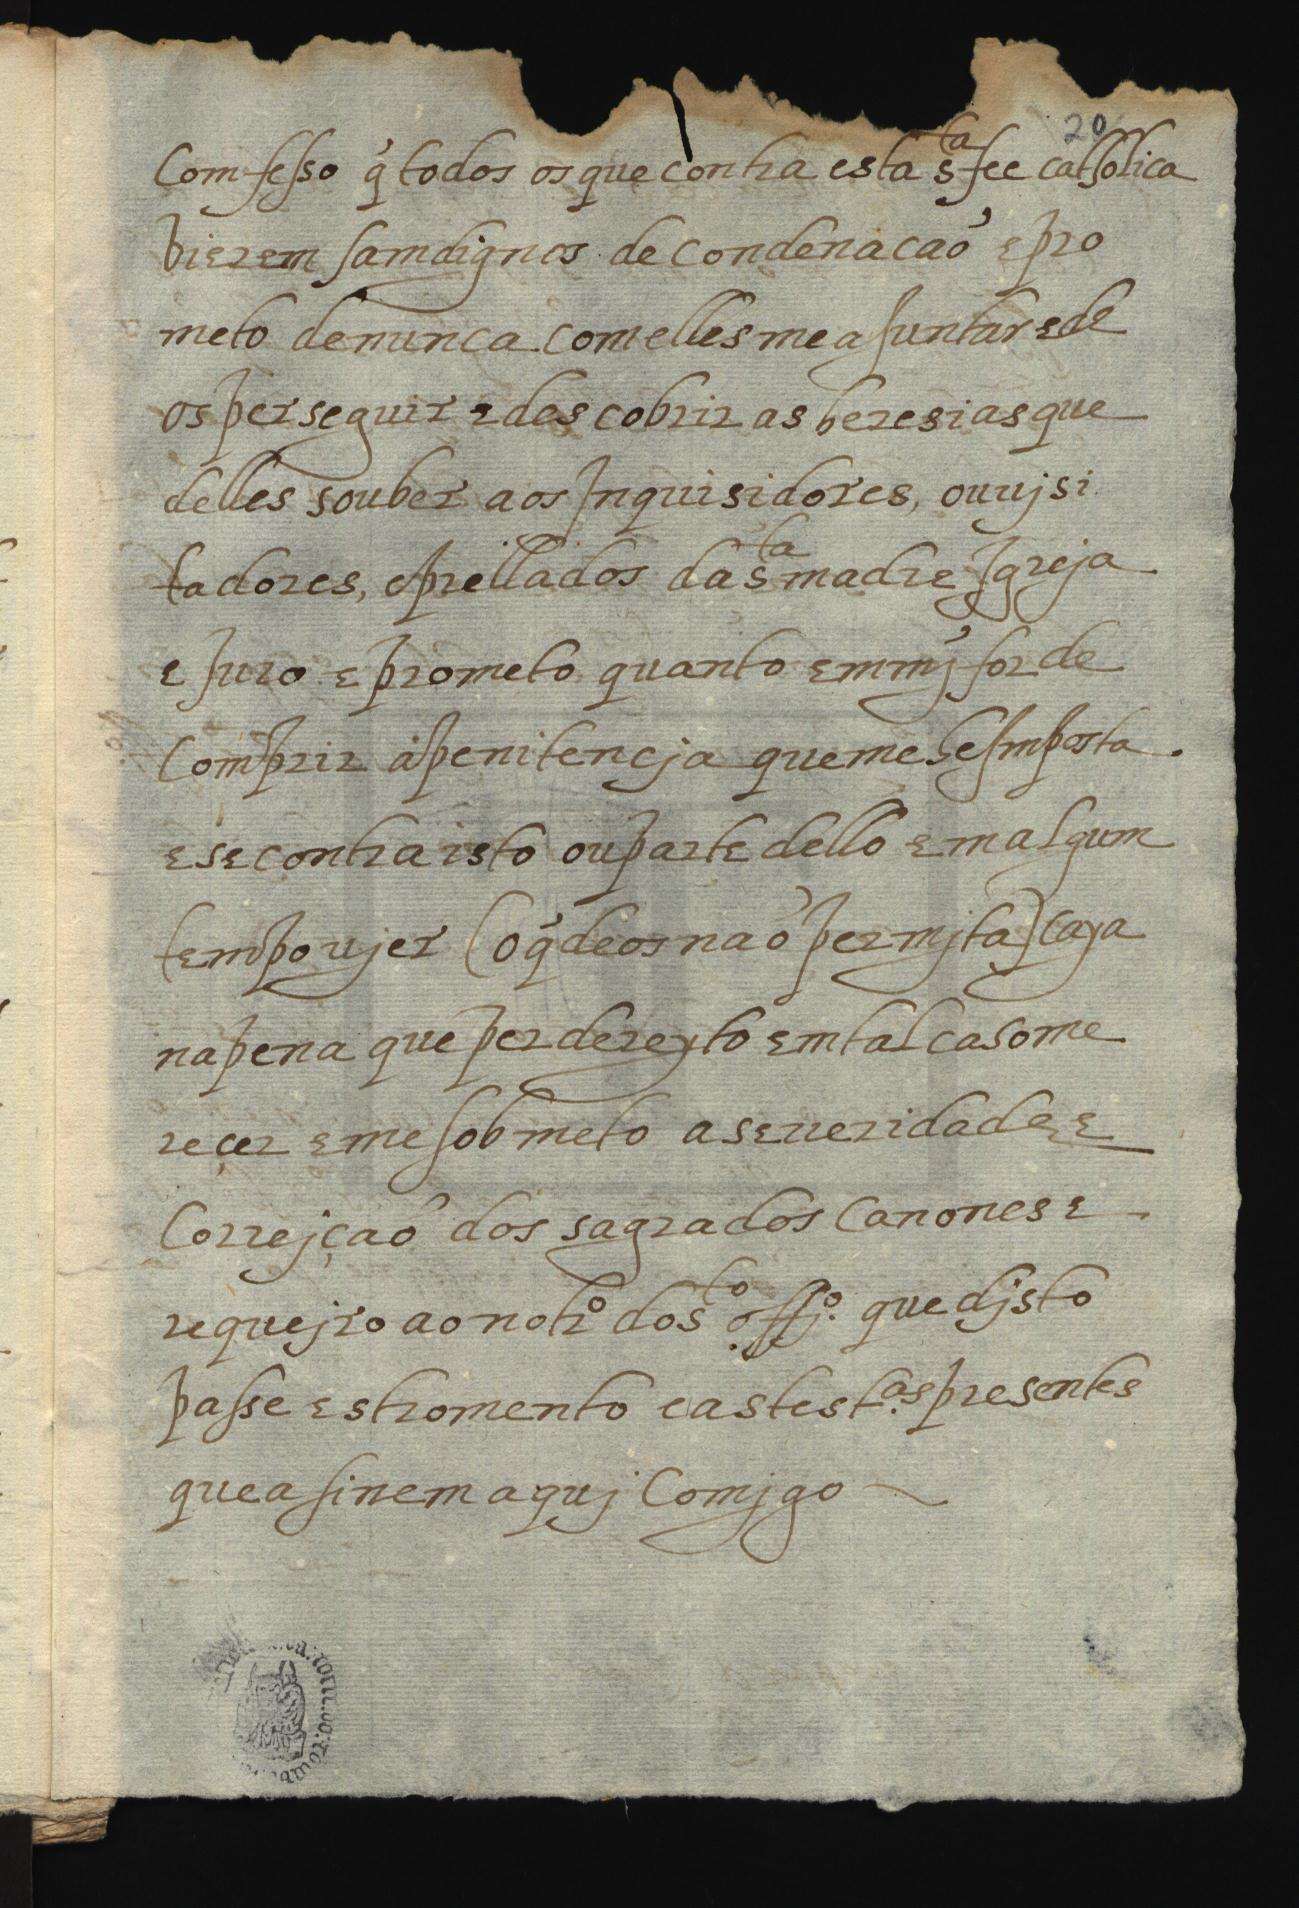 20
Comfesso q̃ todos os que contra esta s.ta fee catholica
vierem sam dignos de condenacaõ e pro
meto de nunca com elles me ajuntar e de
os perseguir e descobrir as heresias que
delles souber aos Inquisidores, ou vjsi
tadores, e prellados da s.ta madre Igreja
e Juro e prometo quanto em mỹ for de
Comprir a penitencja que me he Imposta.
e se contra isto ou parte dello em algum
tempo vjer (o q̃ deos naõ permjta) caya
na pena que per dereyto em tal caso me
reçer e me sobmeto a seueridade e
Correjçaõ dos sagrados Canones e
requejro ao notr.o do s.to offj.o que djsto
passe estromento e as test.as presentes
que asinem aquj Comjgo